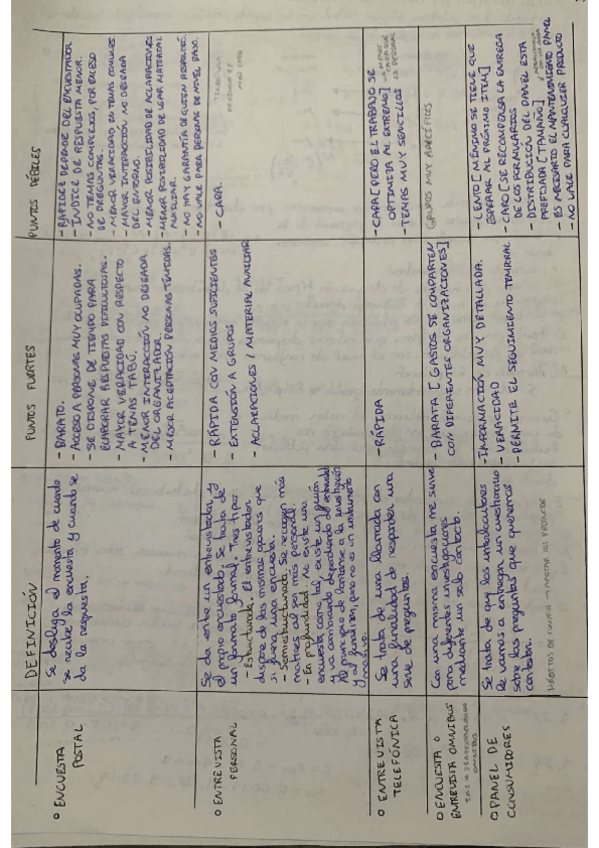 DEFINICIÓN
PUNTOS FUERTES
PUNTOS DÉBILES
O ENCUESTA
POSTAL
Se desliga el momento de cuando
se recibe la encuesta y cuando se
da la respuesta.
- BARATO.
- ACCESO A PERSONAS MUY OCUPADAS.
- SE DISPONE DE TIEMPO PARA
ELABORAR RESPUESTAS DIFICULTOSAS.
- MAYOR VERACIDAD CON RESPECTO
A TEMAS TABÚ.
- MENOR INTERACCIÓN NO DESEADA
DEL ORGANIZADOR.
- MEJOR ACEPTACIÓN PERSONAS TÍMIDAS.
- RAPIDEZ DEPENDE DEL ENCUESTADOR
- ÍNDICE DE RESPUESTA MENOR.
- NO TEMAS COMPLEJOS, POR EXCESO
DE PREGUNTAS.
- MENOR VERACIDAD EN TEMAS COMUNES
- MAYOR INTERACCIÓN NO DESEADA
DEL ENTORNO.
- MENOR POSIBILIDAD DE ACLARACIONES
- MENOR POSIBILIDAD DE USAR MATERIAL
AUXILIAR.
- NO HAY GARANTÍA DE QUIEN RESPONDE.
- NO VALE PARA PERSONAS DE NIVEL BAJO.
O ENTREVISTA
PERSONAL
Se da entre un entrevistador y
el propio encuestado. Se trata de
un formato formal. Tres tipos:
- Estructurada. El entrevistador
dispone de las mismas opciones que
si fuera una encuesta.
- Semiestructurada. Se recogen más
matices al ser más personal.
- En profundidad. No existe una
encuesta como tal, existe un guión
y va cambiando dependiendo del entrevistado
Al principio de lanzarse a la investigación
y al final, pero no es un instrumento
masivo.
- RÁPIDA CON MEDIOS SUFICIENTES
- EXTENSIÓN A GRUPOS
- ACLARACIONES / MATERIAL AUXILIAR
- CARA.
O ENTREVISTA
TELEFÓNICA
Se trata de una llamada con
una finalidad de responder una
serie de preguntas.
- RÁPIDA
- CARA [PERO EL TRABAJO SE
OPTIMIZA AL EXTREMO]
- TEMAS MUY SENCILLOS
O ENCUESTA O
ENTREVISTA OMNIBUS
Con una misma encuesta me sirve
para diferentes investigaciones
mediante un solo contacto.
- BARATA [GASTOS SE COMPARTEN
CON DIFERENTES ORGANIZACIONES]
GRUPOS MUY ESPECÍFICOS
O PANEL DE
CONSUMIDORES
Se trata de que los interlocutores
le vamos a entregar un cuestionario
sobre las preguntas que queremos
contestar.
HÁBITOS DE CONSUMO → ANOTAR LOS PRODUCTOS
- INFORMACIÓN MUY DETALLADA.
- VERACIDAD
- PERMITE EL SEGUIMIENTO TEMPORAL
- LENTO [MÍNIMO SE TIENE QUE
ESPERAR AL PRÓXIMO ITEM]
- CARO [SE RECOMPENSA LA ENTREGA
DE LOS FORMULARIOS
- DISTRIBUCIÓN DEL PANEL ESTA
PREFIJADA [TAMAÑO]
- ES NECESARIO EL MANTENIMIENTO PANEL
- NO VALE PARA CUALQUIER PRODUCTO